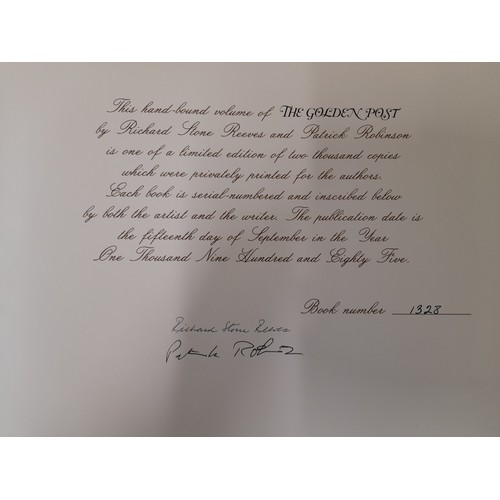 This hand-bound volume of THE GOLDEN POST
by Richard Stone Reeves and Patrick Robinson
is one of a limited edition of two thousand copies
which were privately printed for the authors.
Each book is serial-numbered and inscribed below
by both the artist and the writer. The publication date is
the fifteenth day of September in the Year
One Thousand Nine Hundred and Eighty Five.
Book number 1328
Richard Stone Reeves
Patrick Robinson